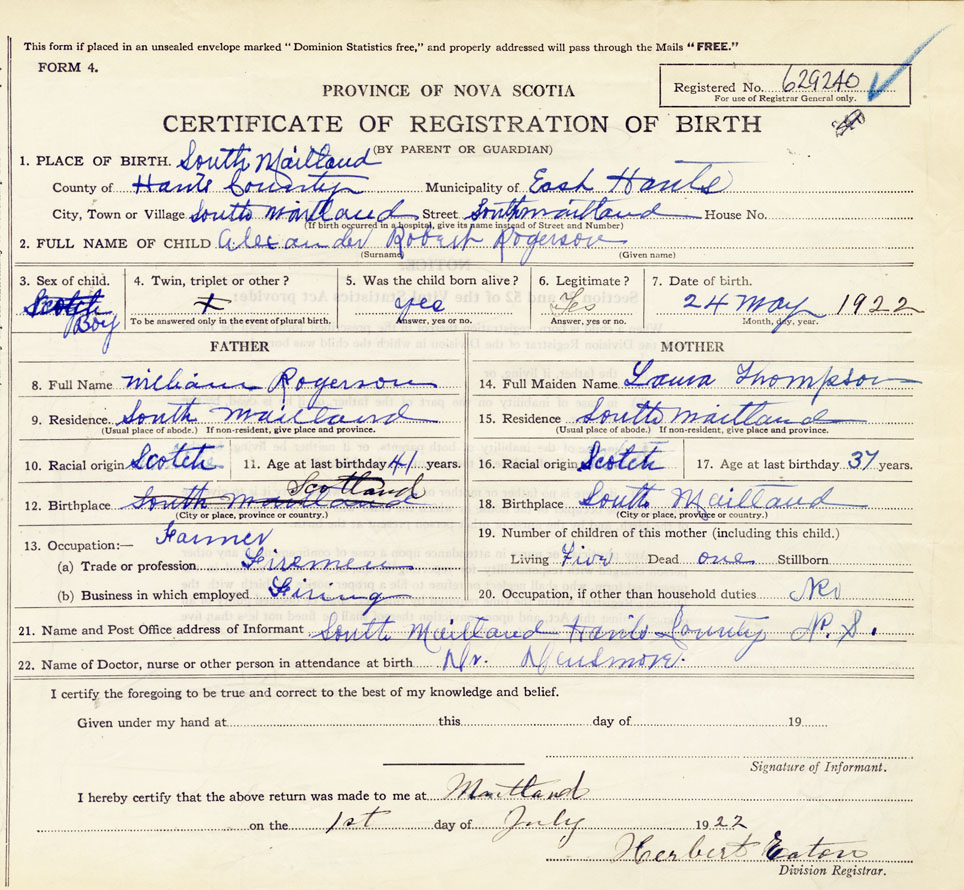 This form if placed in an unsealed envelope marked "Dominion Statistics free," and properly addressed will pass through the Mails "FREE."
FORM 4.
Registered No. 629240
For use of Registrar General only.
PROVINCE OF NOVA SCOTIA
CERTIFICATE OF REGISTRATION OF BIRTH
(BY PARENT OR GUARDIAN)
1. PLACE OF BIRTH. South Maitland
County of Hants County Municipality of East Hants
City, Town or Village South Maitland Street South maitland House No.
(If birth occurred in a hospital, give its name instead of Street and Number)
2. FULL NAME OF CHILD Alexander Robert Rogerson
(Surname) (Given name)
3. Sex of child. 4. Twin, triplet or other? 5. Was the child born alive? 6. Legitimate? 7. Date of birth.
Scotch Boy Yes Yes 24 May 1922
To be answered only in the event of plural birth. Answer, yes or no. Answer, yes or no. Month, day, year.
FATHER MOTHER
8. Full Name William Rogerson 14. Full Maiden Name Laura Thompson
9. Residence. South Maitland 15. Residence South Maitland
(Usual place of abode.) If non-resident, give place and province. (Usual place of abode.) If non-resident, give place and province.
10. Racial origin Scotch 11. Age at last birthday 41 years. 16. Racial origin Scotch 17. Age at last birthday 37 years.
12. Birthplace South Maitland Scotland 18. Birthplace South Maitland
(City or place, province or country.) (City or place, province or country.)
13. Occupation:— Farmer 19. Number of children of this mother (including this child.)
(a) Trade or profession Firemen Living Five Dead one Stillborn
(b) Business in which employed Firing 20. Occupation, if other than household duties No
21. Name and Post Office address of Informant South Maitland Hants County N. S.
22. Name of Doctor, nurse or other person in attendance at birth Dr. Densmore.
I certify the foregoing to be true and correct to the best of my knowledge and belief.
Given under my hand at this day of 19
Signature of Informant.
I hereby certify that the above return was made to me at Maitland
on the 1st day of July 1922
Herbert Eaton
Division Registrar.